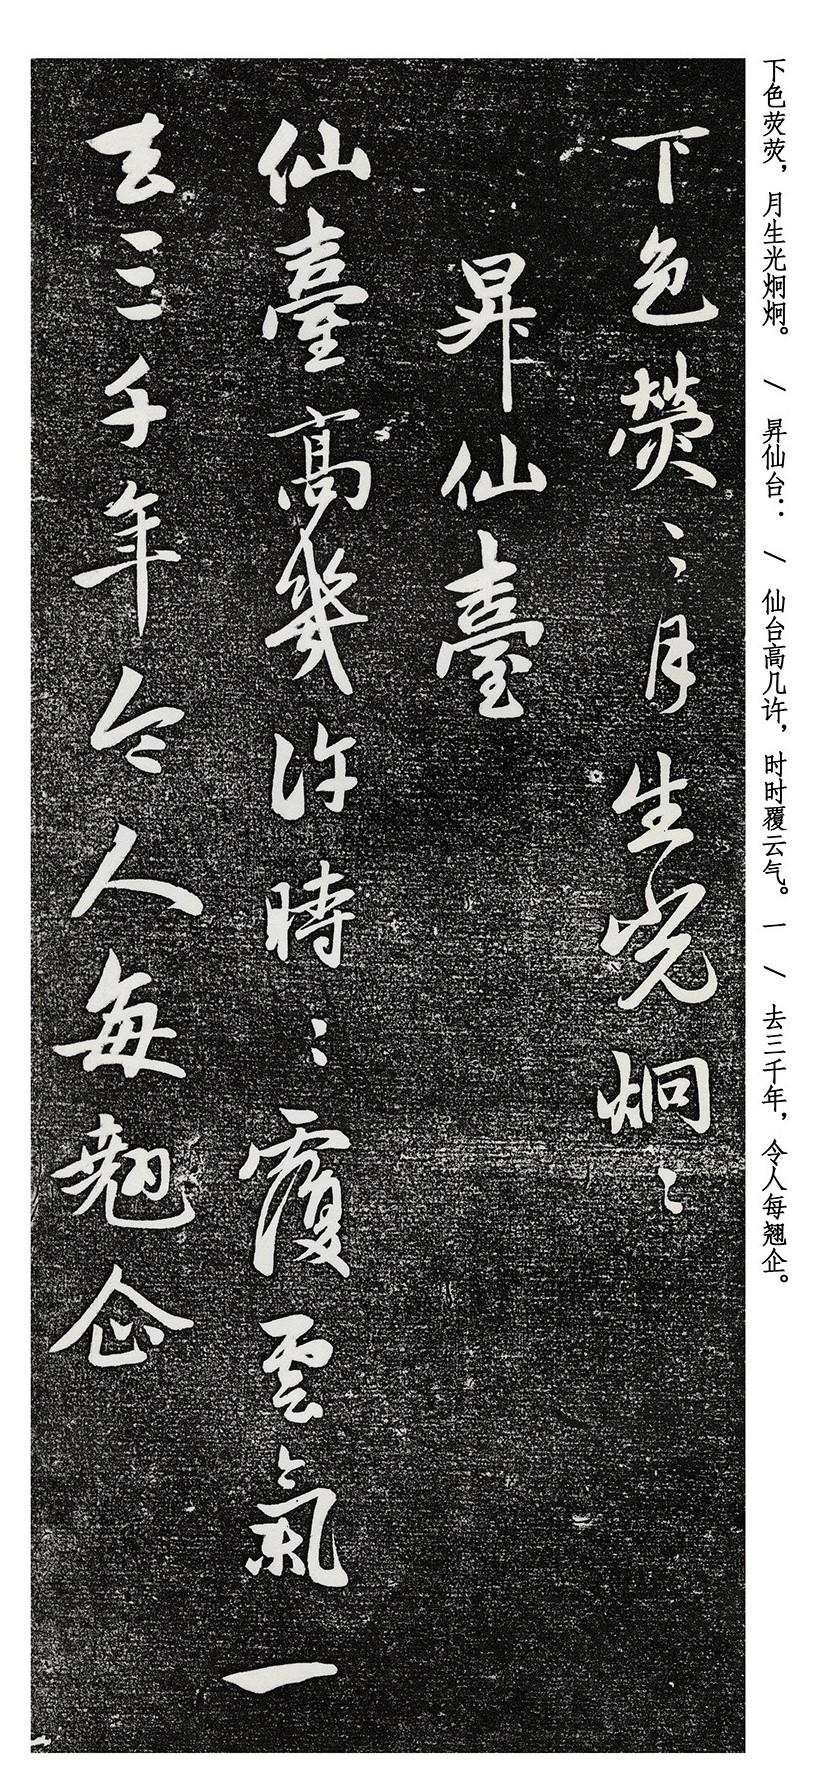 下色荧荧，月生光炯炯。 / 昇仙台： / 仙台高几许，时时覆云气。一 / 去三千年，令人每翘企。
下色熒〻月生光炯〻
昇仙臺
仙臺高幾許時〻覆雲氣一
去三千年令人每翹企